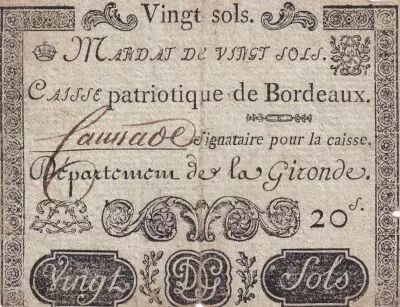 Vingt sols.
MANDAT DE VINGT SOLS.
CAISSE patriotique de Bordeaux.
Signataire pour la caisse.
Département de la Gironde.
20 s.
Vingt DG Sols